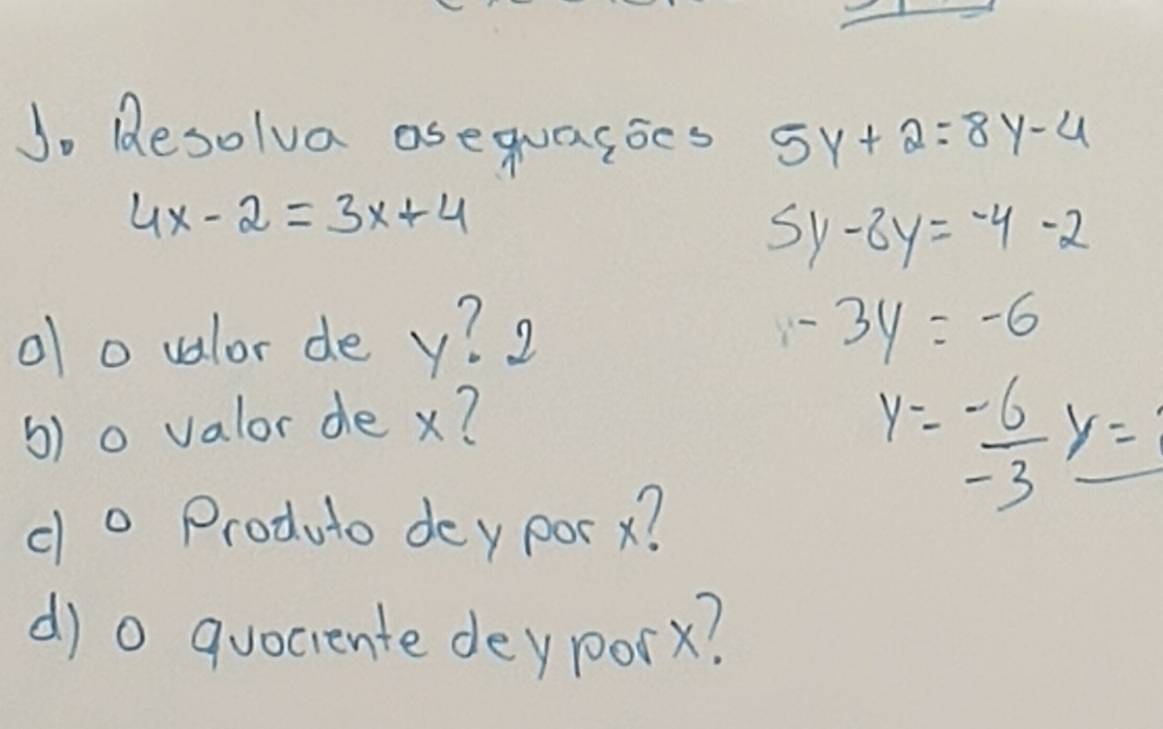 1. Resolva as equações 5y + 2 = 8y - 4
4x - 2 = 3x + 4
5y - 8y = -4 - 2
- 3y = -6
a) o valor de y? 2
b) o valor de x?
y = -6/-3 y =
c) o Produto de y por x?
d) o quociente de y por x?